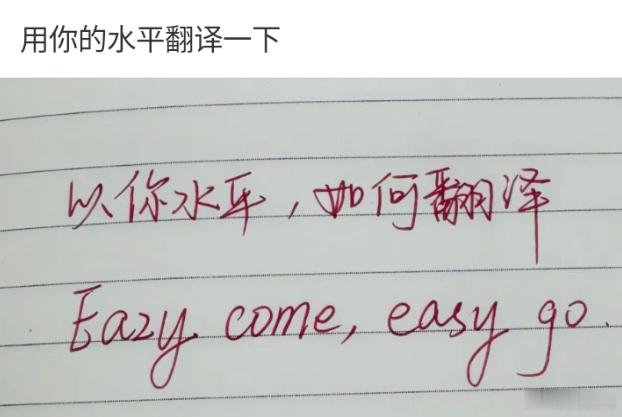 用你的水平翻译一下
以你水平，如何翻译
Eazy come, easy go.